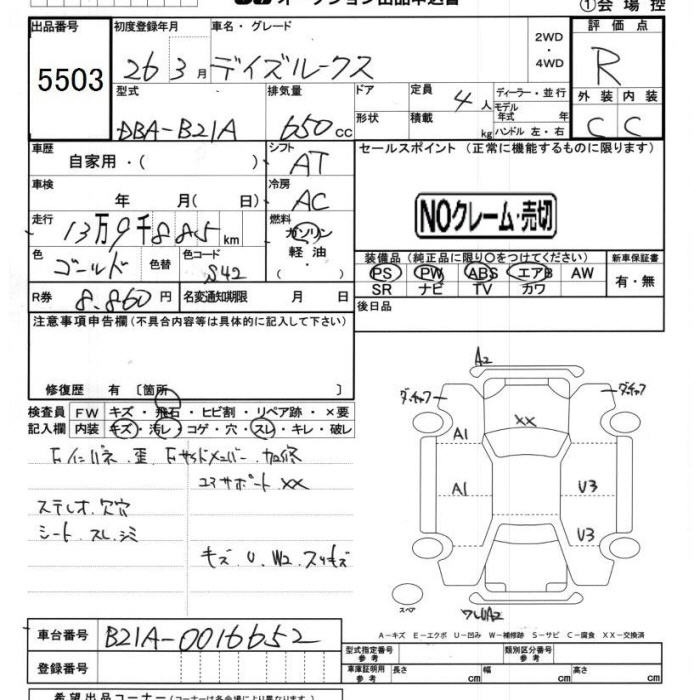 オークション出品申込書
①会場控
出品番号 初度登録年月 車名・グレード 2WD・4WD 評価点
5503 26 3月 デイズルークス R
型式 排気量 ドア 定員 ディーラー・並行 外装 内装
DBA-B21A 650cc 4人 モデル年式 年 C C
形状 積載 kg ハンドル 左・右
車歴 シフト セールスポイント (正常に機能するものに限ります)
自家用・( ) AT
車検 冷房
年 月( 日) AC
NOクレーム・売切
走行 燃料
13万9千885km ガソリン・軽油・( )
色 色替 色コード 装備品 (純正品に限り○をつけてください) 新車保証書
ゴールド S42 PS PW ABS エアB AW 有・無
SR ナビ TV カワ
R券 8.860円 名変通知期限 月 日 後日品
注意事項申告欄 (不具合内容等は具体的に記入して下さい)
修復歴 有 〔箇所 〕
検査員 FW キズ・飛石・ヒビ割・リペア跡・×要
記入欄 内装 キズ・汚レ・コゲ・穴・スレ・キレ・破レ
Fインパネ.歪.Fサイドメンバー.加修
コアサポートXX
ステレオ.欠穴
シート.スレ.シミ
キズ.U.W2.スリキズ
A2
XX
A1
A1 U3
U3
スペア
A-キズ E-エクボ U-凹み W-補修跡 S-サビ C-腐食 XX-交換済
車台番号 B21A-0016652
登録番号
型式指定番号 参考 類別区分番号 参考
車庫証明用 参考 長さ cm 幅 cm 高さ cm
希望出品コーナー (コーナーは各会場により異なります)